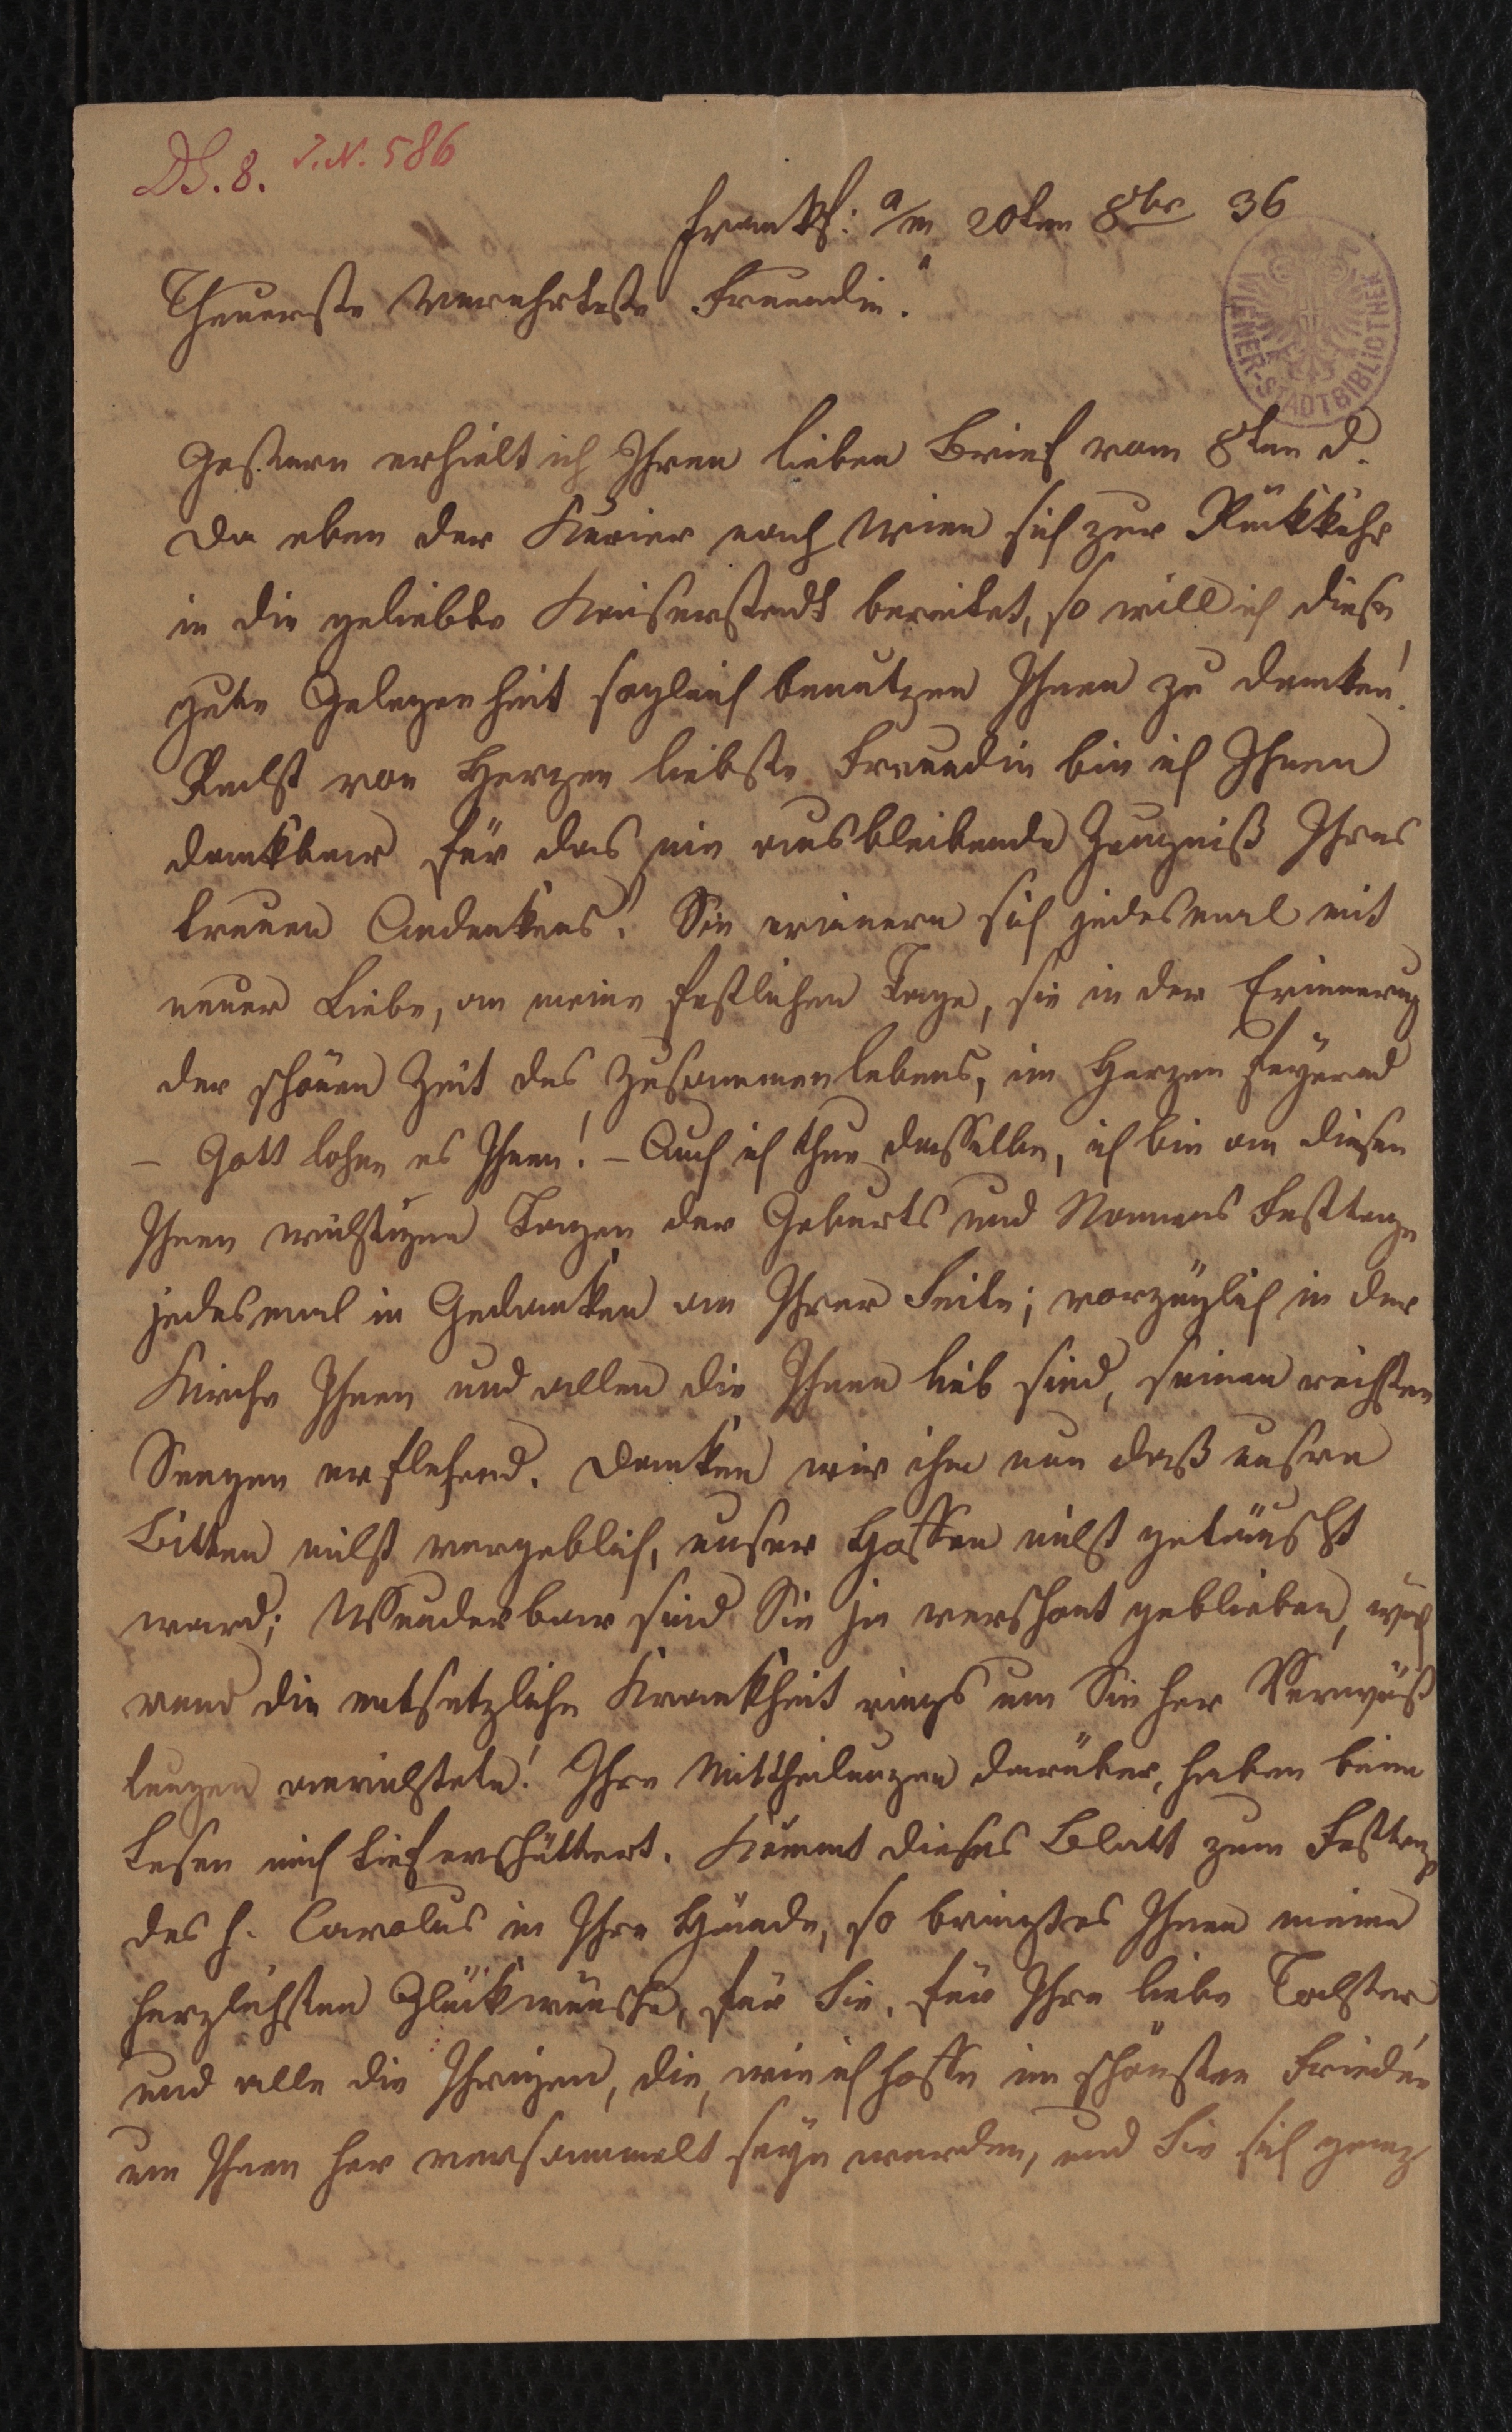 DS. 8. I.N. 586
Frankf: a/m 20ten 8br 36
WIENER-STADTBIBLIOTHEK
Theuerste Verehrteste Freundin!
Gestern erhielt ich Ihren lieben Brief vom 8ten d.
Da eben der Kurier nach Wien sich zur Rückkehr
in die geliebte Kaiserstadt bereitet, so will ich diese
gute Gelegenheit sogleich benutzen Ihnen zu danken!
Recht von Herzen liebste Freundin bin ich Ihnen
dankbar für das nie ausbleibende Zeugniß Ihres
treuen Andenkens! Sie erinnern sich jedesmal mit
neuer Liebe, an meine festlichen Tage, sie in der Erinnerung
der schönen Zeit des Zusammenlebens, im Herzen feyernd
– Gott lohne es Ihnen! – Auch ich thue dasselbe, ich bin an diesen
Ihnen wichtigen Tagen der Geburts und Namens Festtage
jedesmal in Gedanken an Ihrer Seite; vorzüglich in der
Kirche Ihnen und allen die Ihnen lieb sind, seinen reichsten
Seegen erflehend. Danken wir ihm nun daß unsre
Bitten nicht vergeblich, unser Hoffen nicht getäuscht
ward; Wunderbar sind Sie ja verschont geblieben, wäh
rend die entsetzliche Krankheit rings um Sie her Verwüs
tungen anrichtete! Ihre Mittheilungen darüber, haben beim
Lesen mich tief erschüttert. Kömmt dieses Blatt zum Festtag
des h. Carolus in Ihre Hände, so bringt es Ihnen meine
herzlichsten Glückwünsche, für Sie, für Ihre liebe Tochter
und alle die Ihrigen, die, wie ich hoffe im schönsten Frieden
um Ihnen her versammelt seyn werden, und Sie sich ganz